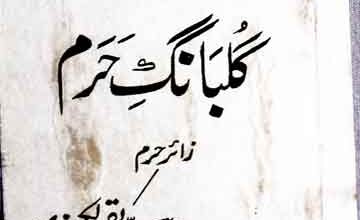 گُلبَانگِ حَرَم
زائرِ حرم